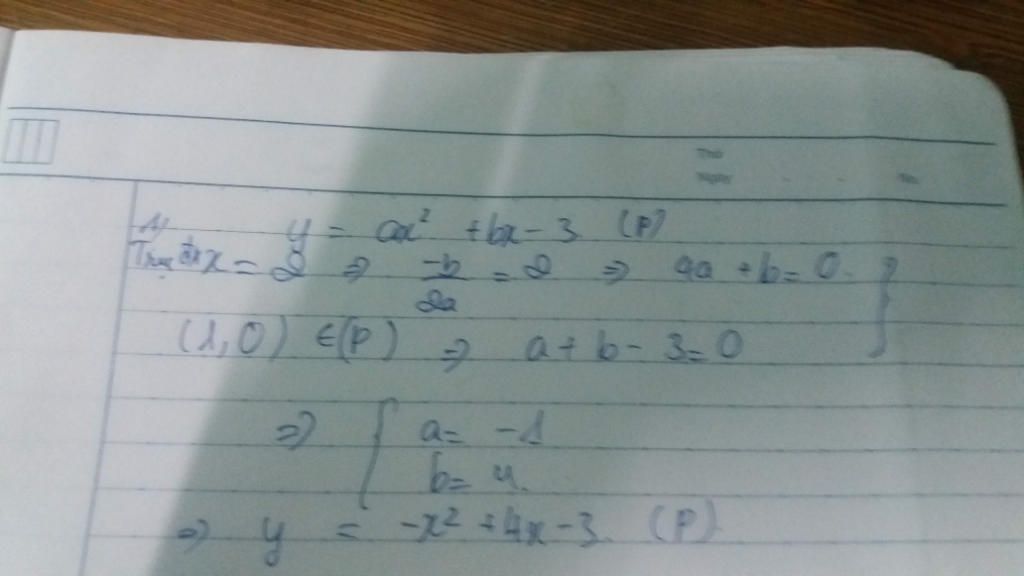 1)
y = ax² + bx - 3 (P)
Trục đx x = 2 ⇒ -b/2a = 2 ⇒ 4a + b = 0 }
(1,0) ∈ (P) ⇒ a + b - 3 = 0
⇒ { a = -1
b = 4.
⇒ y = -x² + 4x - 3 (P)